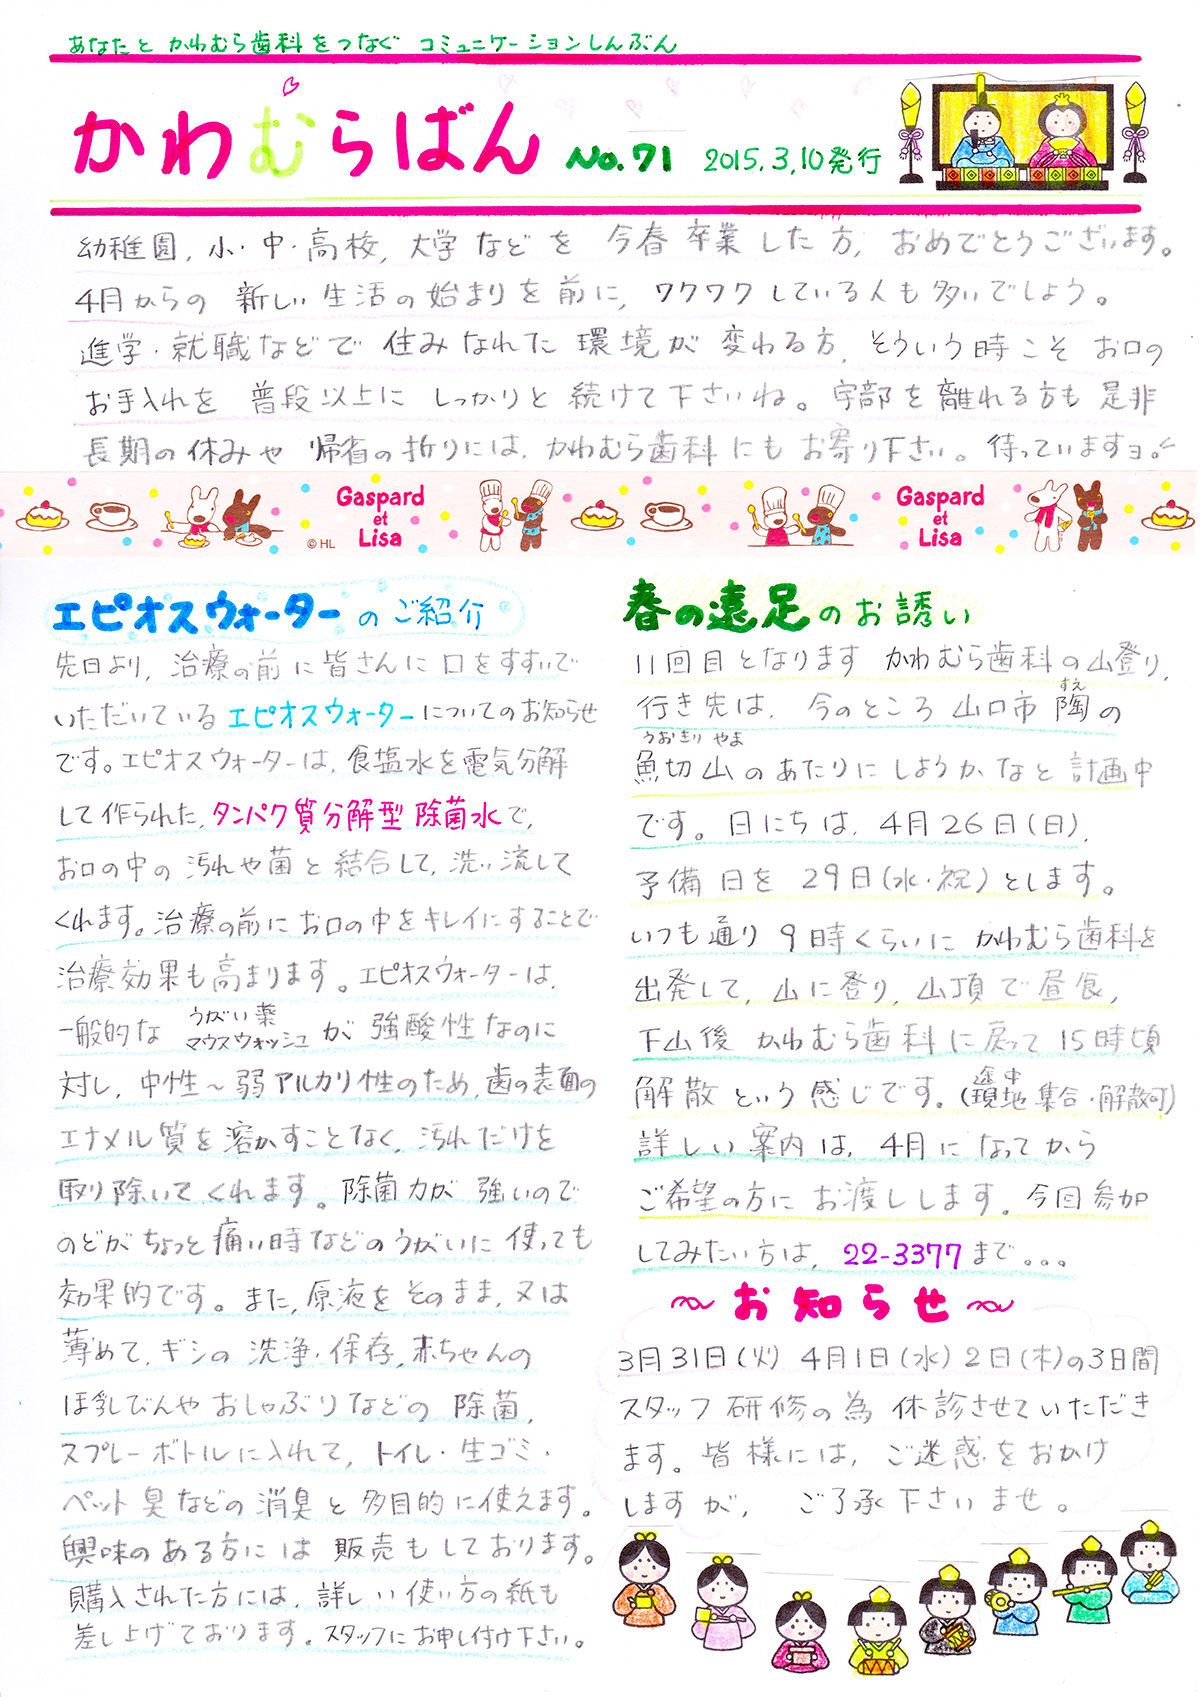 あなたと かわむら歯科をつなぐ コミュニケーションしんぶん
かわむらばん No.71 2015.3.10発行
幼稚園,小・中・高校,大学などを 今春卒業した方,おめでとうございます。
4月からの 新しい生活の始まりを前に,ワクワクしている人も多いでしょう。
進学・就職などで 住みなれた環境が 変わる方,そういう時こそ お口の
お手入れを 普段以上に しっかりと続けて下さいね。宇部を離れる方も是非
長期の休みや 帰省の折りには,かわむら歯科にも お寄り下さい。待っていますヨ。
Gaspard et Lisa
Gaspard et Lisa
© HL
エピオスウォーターのご紹介
先日より,治療の前に皆さんに口をすすいで
いただいているエピオスウォーターについてのお知らせ
です。エピオスウォーターは,食塩水を電気分解
して作られた,タンパク質分解型 除菌水で,
お口の中の 汚れや菌と結合して,洗い流して
くれます。治療の前にお口の中をキレイにすることで
治療効果も高まります。エピオスウォーターは,
一般的な うがい薬 マウスウォッシュ が 強酸性なのに
対し,中性〜弱アルカリ性のため,歯の表面の
エナメル質を溶かすことなく,汚れだけを
取り除いてくれます。除菌力が 強いので
のどがちょっと痛い時などのうがいに使っても
効果的です。また,原液をそのまま,又は
薄めて,ギシの洗浄・保存,赤ちゃんの
ほ乳びんやおしゃぶりなどの 除菌,
スプレーボトルに入れて,トイレ・生ゴミ・
ペット臭などの消臭と多目的に使えます。
興味のある方には 販売もしております。
購入された方には,詳しい使い方の紙も
差し上げております。スタッフにお申し付け下さい。
春の遠足のお誘い
11回目となります かわむら歯科の山登り,
行き先は,今のところ 山口市 陶の
すえ
うおきり やま
魚切山のあたりにしようか,なと 計画中
です。日にちは,4月26日(日),
予備日を 29日(水・祝)とします。
いつも通り 9時くらいに かわむら歯科を
出発して,山に登り,山頂で昼食,
下山後 かわむら歯科に戻って15時頃
解散という感じです。(途中 現地 集合・解散可)
詳しい案内は,4月に なってから
ご希望の方に お渡しします。今回参加
してみたい方は,22-3377まで...
〜お知らせ〜
3月31日(火) 4月1日(水) 2日(木)の3日間
スタッフ研修の為 休診させていただき
ます。皆様には,ご迷惑をおかけ
しますが,ご了承下さいませ。